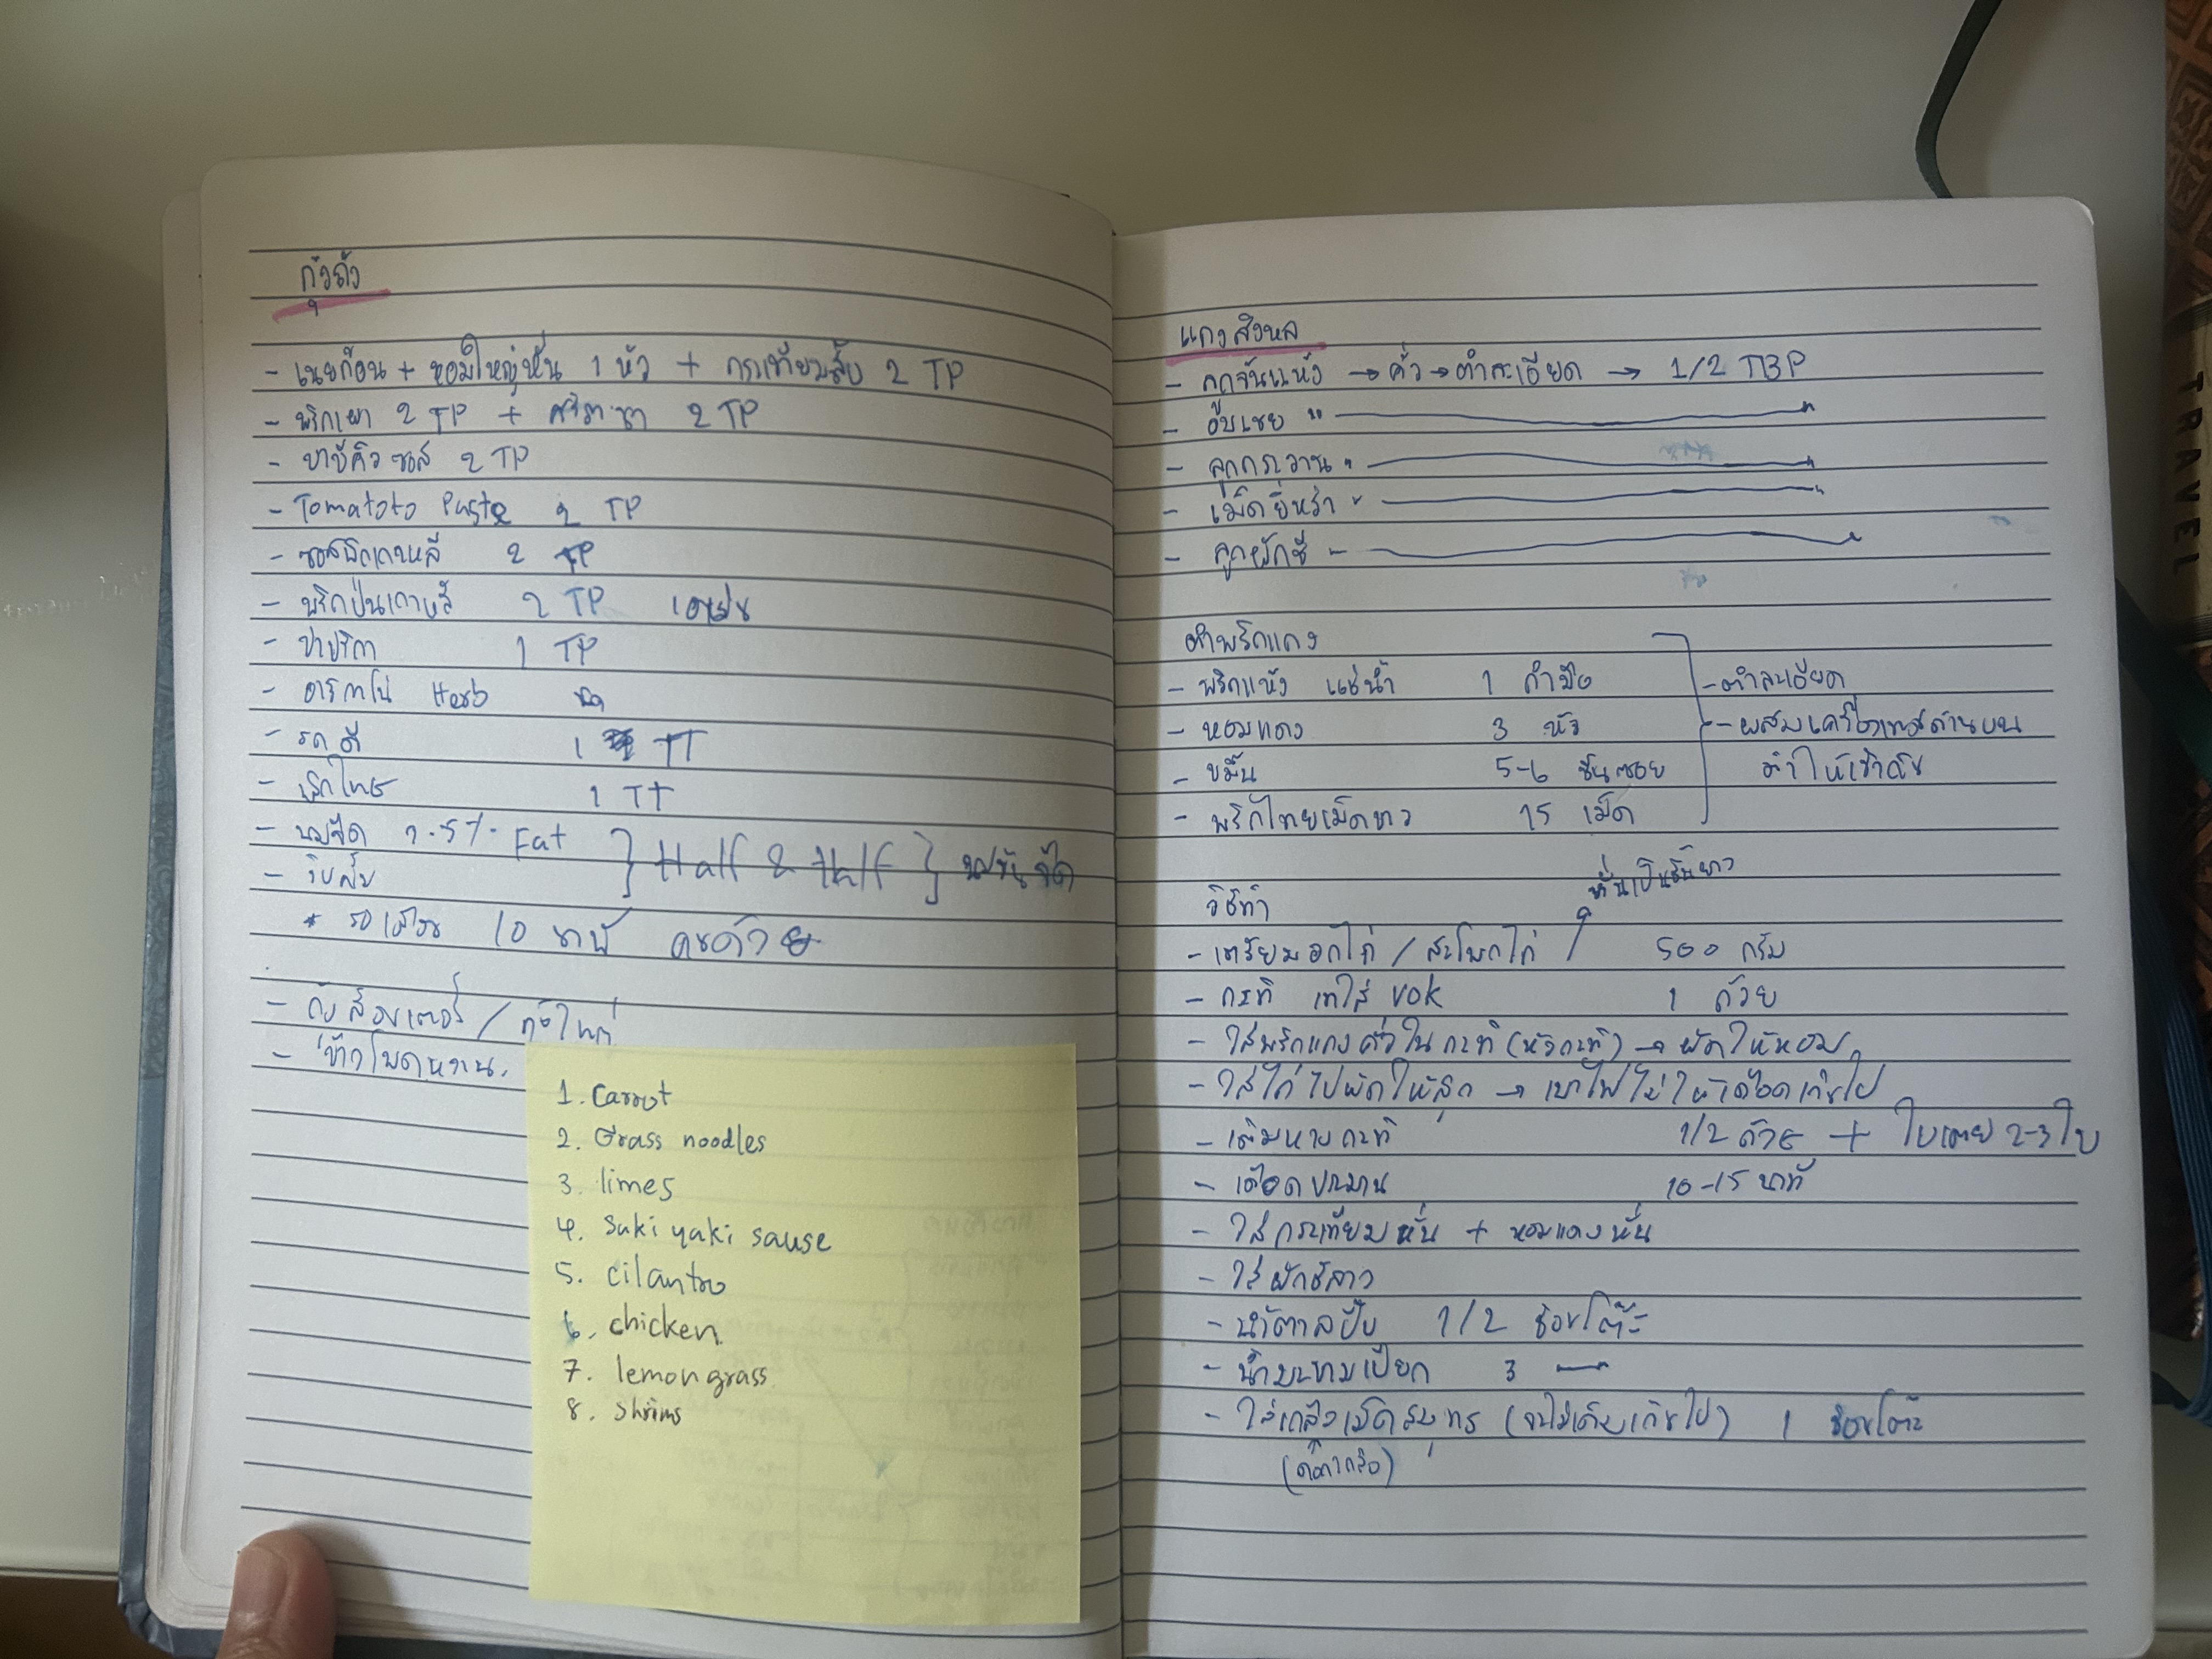 กุ้งถัง
- เนยก้อน + หอมใหญ่หั่น 1 หัว + กระเทียมสับ 2 TP
- พริกเผา 2 TP + ศรีราชา 2 TP
- บาบีคิวซอส 2 TP
- Tomatoto Paste 2 TP
- ซอสพริกเกาหลี 2 TP
- พริกป่นเกาหลี 2 TP
- ปาปริกา 1 TP
- ออริกาโน่ Herb
- รสดี 1 TT
- พริกไทย 1 TT
- นมจืด 2.5% Fat } Half & Half }
- วิปครีม
* รอเดือด 10 นาที คนด้วย
- กั้ง ล็อบเตอร์ / กุ้งใหญ่
- ข้าวโพดหวาน.
1. Carrot
2. Grass noodles
3. limes
4. Suki yaki sause
5. cilantro
6. chicken
7. lemongrass
8. Shrimp
แกงสิงหล
- ลูกจันแห้ง → คั่ว → ตำละเอียด → 1/2 TBP
- อบเชย "
- ลูกกระวาน "
- เม็ดยี่หร่า "
- ลูกผักชี -
ตำพริกแกง
- พริกแห้ง แช่น้ำ 1 กำมือ - ตำละเอียด
- หอมแดง 3 หัว - ผสมเครื่องเทศด้านบน
- ขมิ้น 5-6 ชิ้นซอย ตำให้เข้ากัน
- พริกไทยเม็ดขาว 15 เม็ด
หั่นเป็นชิ้นยาว
วิธีทำ
- เตรียมอกไก่ / สะโพกไก่ 500 กรัม
- กะทิ เทใส่ wok 1 ถ้วย
- ใส่พริกแกงคั่วในกะทิ (หัวกะทิ) → ผัดให้หอม
- ใส่ไก่ไปผัดให้สุก → เบาไฟไม่ให้เดือดเกินไป
- เติมหางกะทิ 1/2 ถ้วย + ใบเตย 2-3 ใบ
- เดือดประมาณ 10-15 นาที
- ใส่กระเทียมหั่น + หอมแดงหั่น
- ใส่ผักชีลาว
- น้ำตาลปี๊บ 1/2 ช้อนโต๊ะ
- น้ำมะขามเปียก 3 —
- ใส่เกลือเม็ดสมุทร (จะไม่เค็มเกินไป) 1 ช้อนโต๊ะ